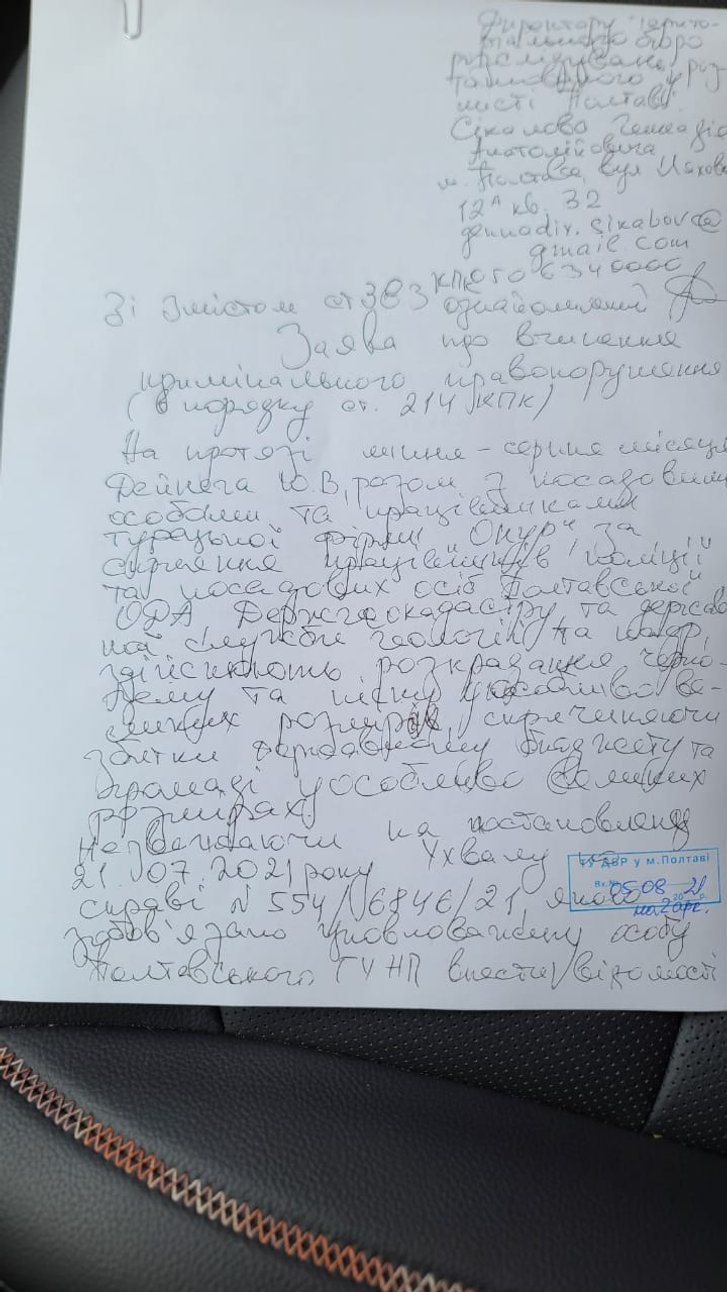 Директору терито-
ріального бюро
розслідувань, роз
ташованого у
місті Полтаві
Сікалово Геннадія
Анатолійовича
м. Полтава, вул
12А кв. 32
gennadiy.sikabov@
gmail.com
050 6340000
Зі змістом ст 383 КПК ознайомлений
Заява про вчинення
кримінального правопорушення
(в порядку ст. 214 КПК)
На протязі липня – серпня місяця
Дейнега Ю.В, разом з посадовими
особами та працівниками
турецької фірми "Онур", за
сприяння працівників поліції
та посадових осіб Полтавської
ОДА Держгеокадастру та держав
ної служби геології та надр,
здійснюють розкрадання чорно-
зему та піску у особливо ве-
ликих розмірах, спричиняючи
збитки державному бюджету та
громаді у особливо великих
розмірах
Незважаючи на постановлену
21.07.2021 року Ухвалу по
справі N 554/6846/21 якою
зобов'язано уповноважену особу
Полтавського ГУНП внести відомості
ТУ ДБР у м.Полтаві
Вх.№
05 08 2021 р.
на 2 арк.